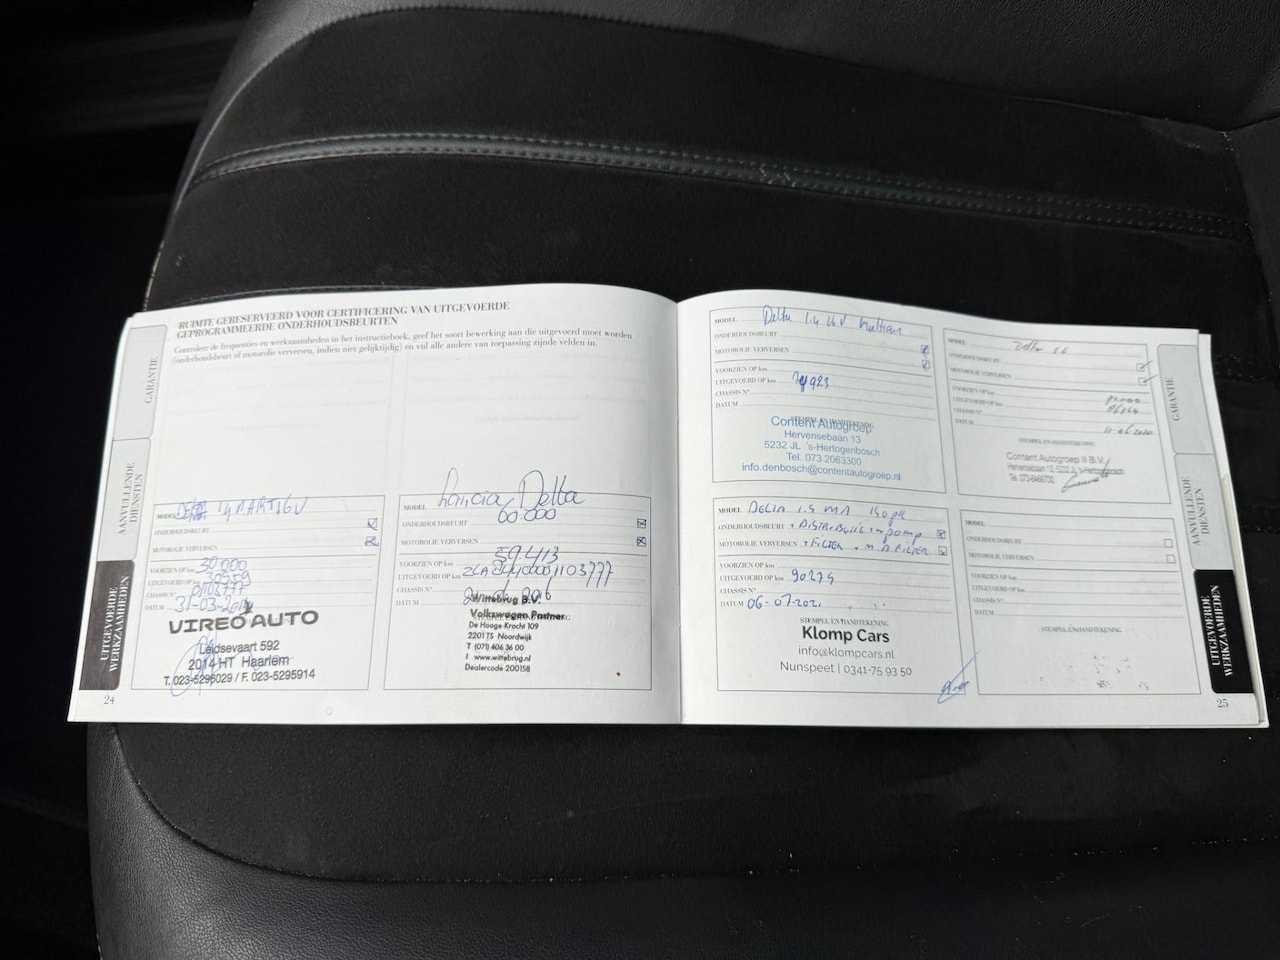 RUIMTE GERESERVEERD VOOR CERTIFICERING VAN UITGEVOERDE
GEPROGRAMMEERDE ONDERHOUDSBEURTEN
Controleer de frequenties en werkzaamheden in het instructieboek, geef het soort bewerking aan die uitgevoerd moet worden
(onderhoudsbeurt of motorolie verversen, indien niet gelijktijdig) en vul alle andere van toepassing zijnde velden in.
GARANTIE
AANVULLENDE
DIENSTEN
UITGEVOERDE
WERKZAAMHEDEN
24
MODEL 1.4 16V
ONDERHOUDSBEURT
MOTOROLIE VERVERSEN
VOORZIEN OP km 30.000
UITGEVOERD OP km 30559
CHASSIS N° 01103777
DATUM 31-03-201
VIREO AUTO
Leidsevaart 592
2014 HT Haarlem
T. 023-5296029 / F. 023-5295914
MODEL Lancia Delta
60.000
ONDERHOUDSBEURT
MOTOROLIE VERVERSEN
VOORZIEN OP km 59413
UITGEVOERD OP km ZLA8440001103777
CHASSIS N°
DATUM 2016
Wittebrug B.V.
Volkswagen Partner
De Hooge Krocht 109
2201 TS Noordwijk
T (071) 406 36 00
I www.wittebrug.nl
Dealercode 200158
MODEL Delta 1.4 16V Multiair
ONDERHOUDSBEURT
MOTOROLIE VERVERSEN
VOORZIEN OP km
UITGEVOERD OP km 74923
CHASSIS N°
DATUM
STEMPEL EN HANDTEKENING
Content Autogroep
Hervensebaan 13
5232 JL 's-Hertogenbosch
Tel. 073 2063300
info.denbosch@contentautogroep.nl
MODEL Delta
ONDERHOUDSBEURT
MOTOROLIE VERVERSEN
VOORZIEN OP km
UITGEVOERD OP km
CHASSIS N°
DATUM 11-06-2020
STEMPEL EN HANDTEKENING
Content Autogroep II B.V.
Hervensebaan 13, 5232 JL 's-Hertogenbosch
MODEL DELTA
ONDERHOUDSBEURT + DISTRIBUTIE + W pomp
MOTOROLIE VERVERSEN + FILTER
VOORZIEN OP km
UITGEVOERD OP km 90274
CHASSIS N°
DATUM 06-07-2021
STEMPEL EN HANDTEKENING
Klomp Cars
info@klompcars.nl
Nunspeet | 0341-75 93 50
MODEL
ONDERHOUDSBEURT
MOTOROLIE VERVERSEN
VOORZIEN OP km
UITGEVOERD OP km
CHASSIS N°
DATUM
STEMPEL EN HANDTEKENING
GARANTIE
AANVULLENDE
DIENSTEN
UITGEVOERDE
WERKZAAMHEDEN
25